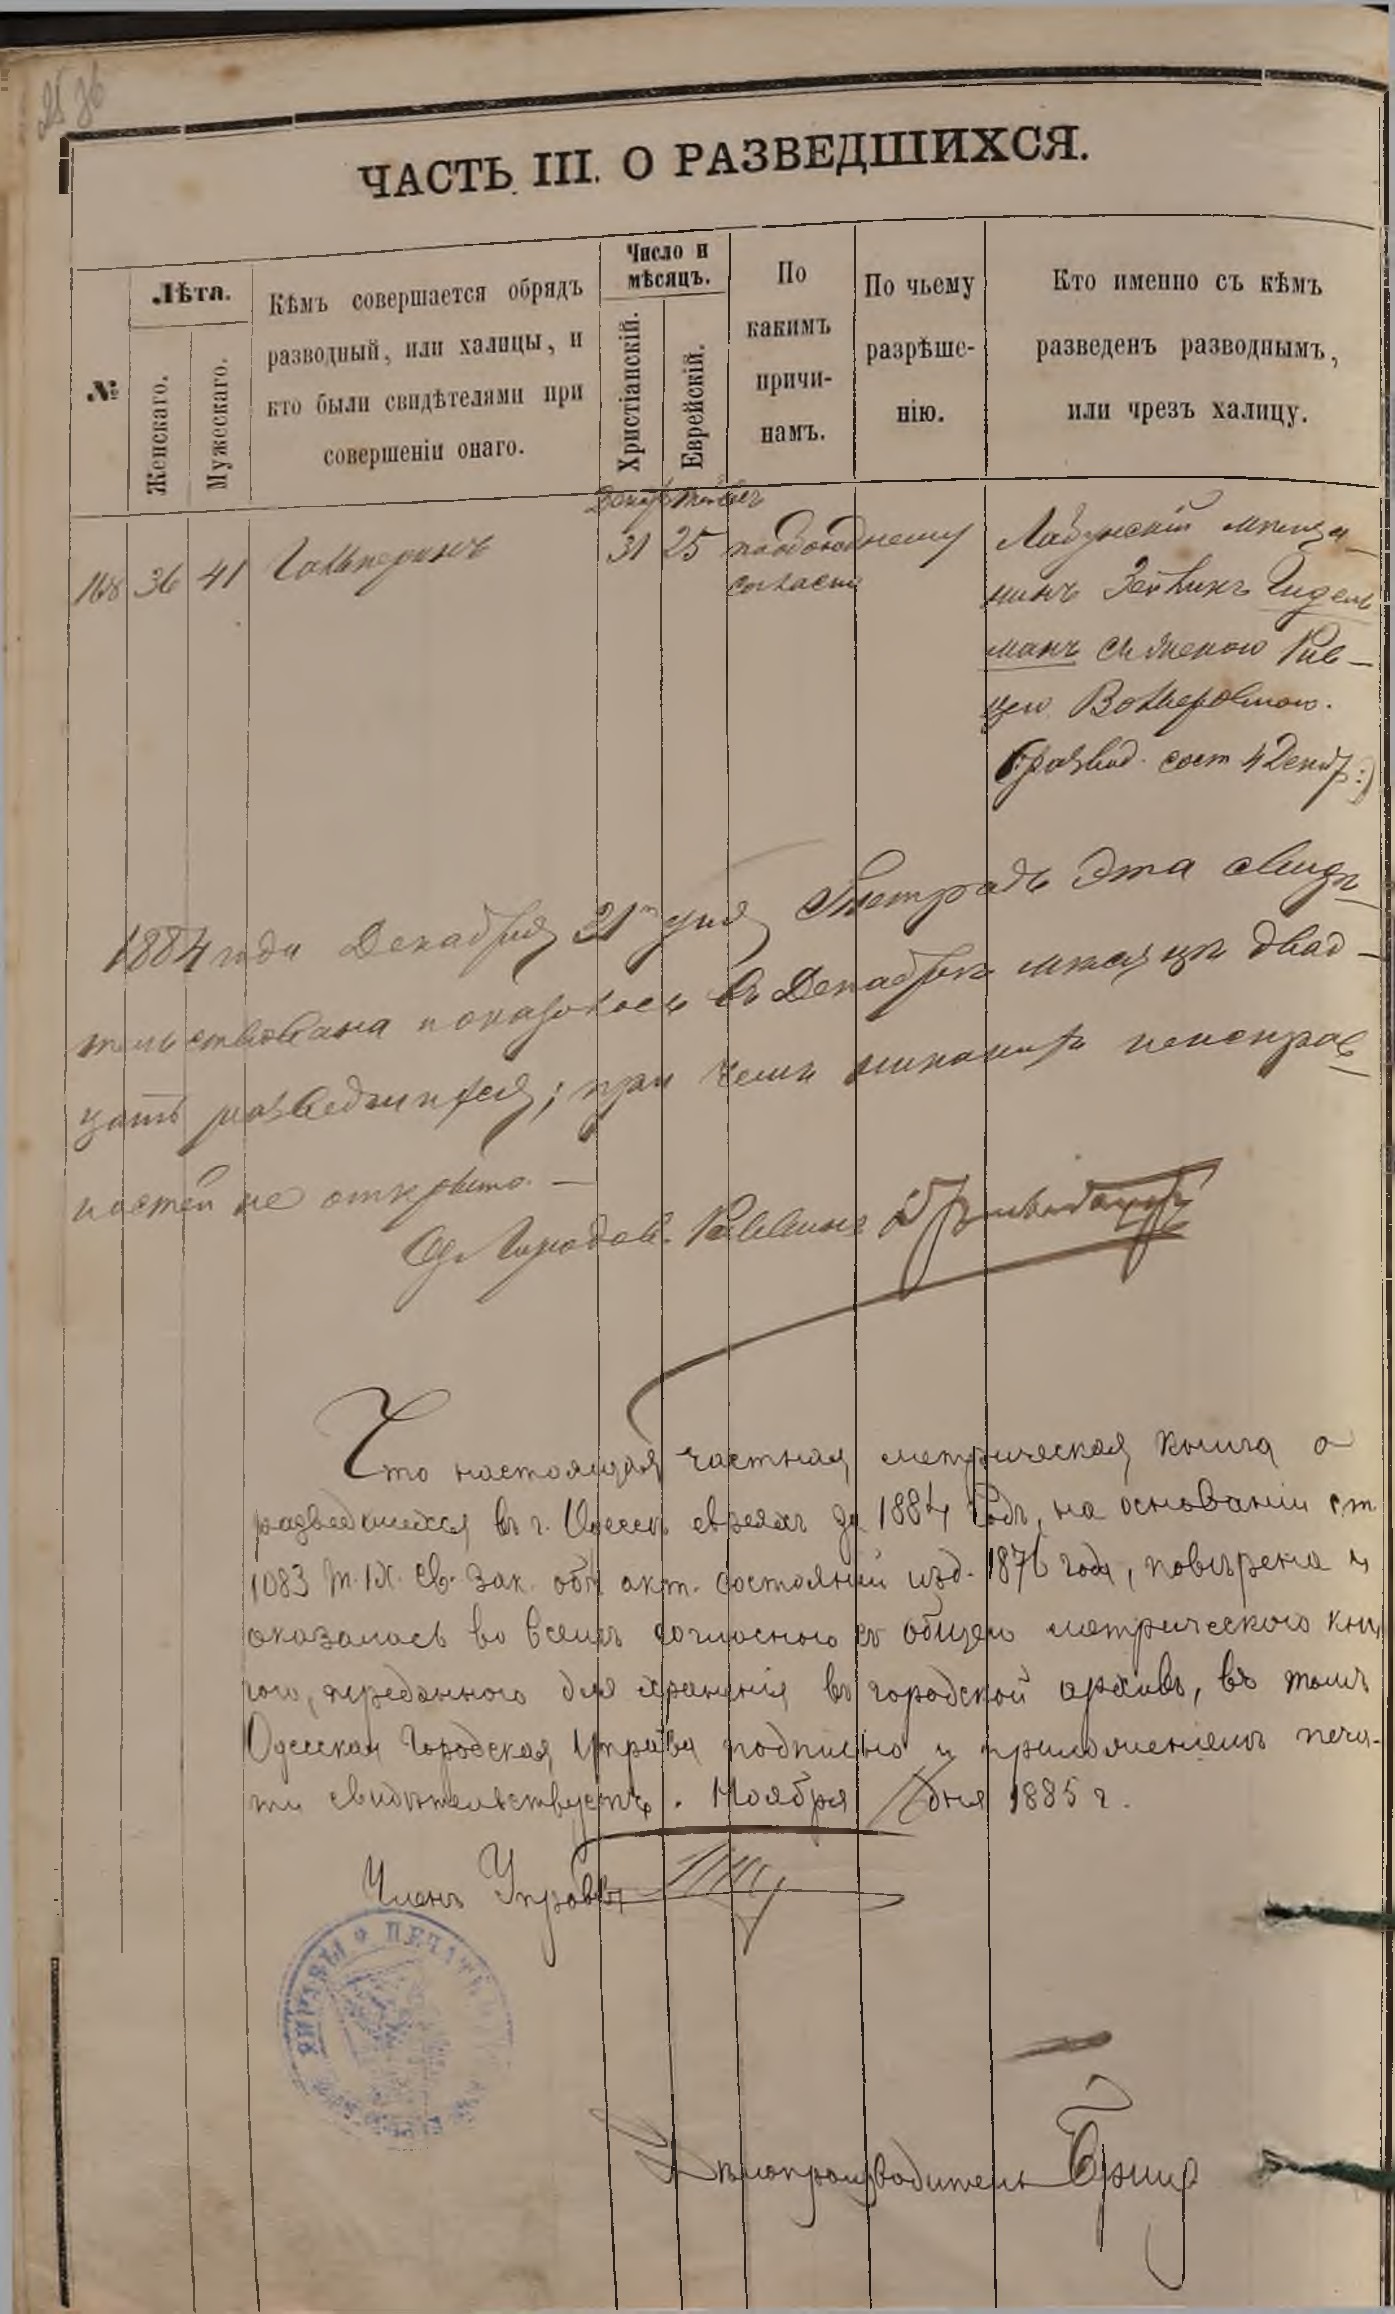 ЧАСТЬ III. О РАЗВЕДШИХСЯ.
№
Лѣта.
Женскаго.
Мужескаго.
Кѣмъ совершается обрядъ
разводный, или халицы, и
кто были свидѣтелями при
совершеніи онаго.
Число и
мѣсяцъ.
Христіанскій.
Еврейскій.
По
какимъ
причи-
намъ.
По чьему
разрѣше-
нію.
Кто именно съ кѣмъ
разведенъ разводнымъ,
или чрезъ халицу.
Декаб Тейвес
168 36 41 Гальперинъ 31 25 по обоюдному
согласію
Лабунскій мѣща-
нинъ Зейликъ Гидель
манъ съ женою Рив-
цею
(:развод. сост 4 Декабр:)
1884 года Декабря 31го дня Тетрадь эта свидѣ-
тельствована и оказалось въ Декабрѣ мѣсяцѣ двад-
цать разведшихся; при чемъ никакихъ неисправ-
ностей не открыто. —
Од. Городов. Раввинъ
Что настоящая частная метрическая книга о
разведшихся въ г. Одессѣ евреяхъ за 1884 годъ, на основаніи ст
1083 т. IX. Св. Зак. объ акт. состояній изд. 1876 года, повѣрена и
оказалась во всемъ согласною съ общею метрическою кни
гою, переданною для храненія въ городской архивъ, въ томъ
Одесская Городская Управа подписью и приложеніемъ печа-
ти свидѣтельствуетъ. Ноября 11 дня 1885 г.
Членъ Управы
УПРАВЫ * ПЕЧАТЬ
Дѣлопроизводитель